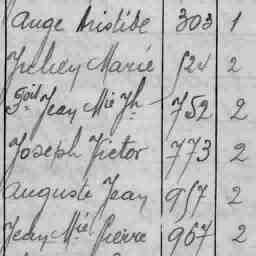 Ange Aristide 303 1
Julien Marie 524 2
Jean Mie Jh 752 2
Joseph Victor 773 2
Auguste Jean 957 2
Jean Mie Pierre 967 2